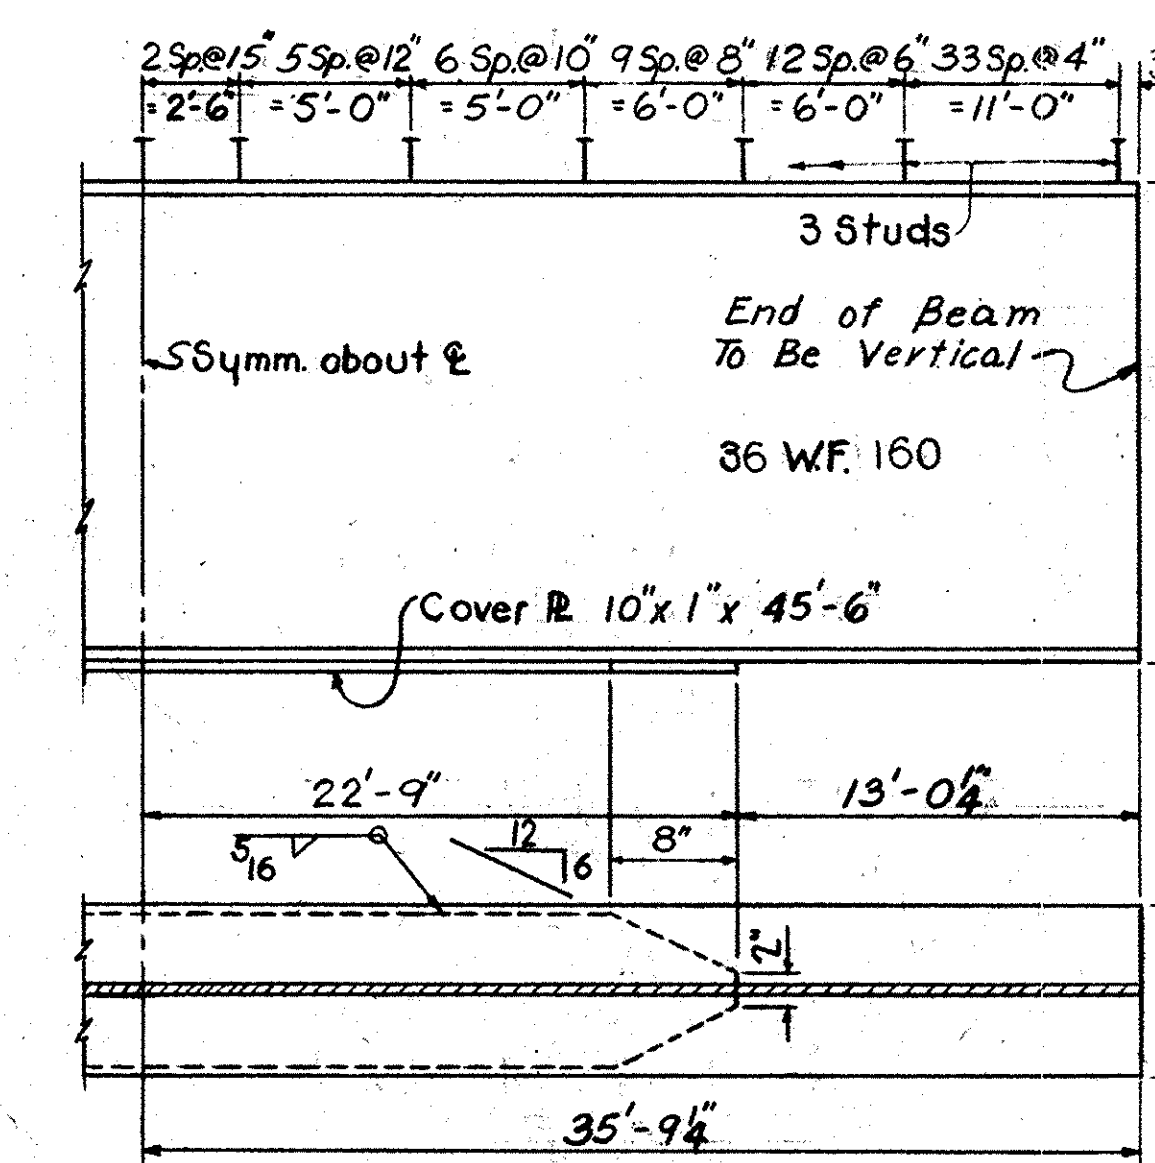 2 Sp.@15" 5 Sp.@12" 6 Sp.@10" 9 Sp.@8" 12 Sp.@6" 33 Sp.@4"
=2'-6" =5'-0" =5'-0" =6'-0" =6'-0" =11'-0"
3 Studs
End of Beam
To Be Vertical
Symm. about ℄
36 W.F. 160
Cover ⅊ 10"x 1"x 45'-6"
22'-9"
13'-0¼"
12
6
8"
5/16
2"
35'-9¼"